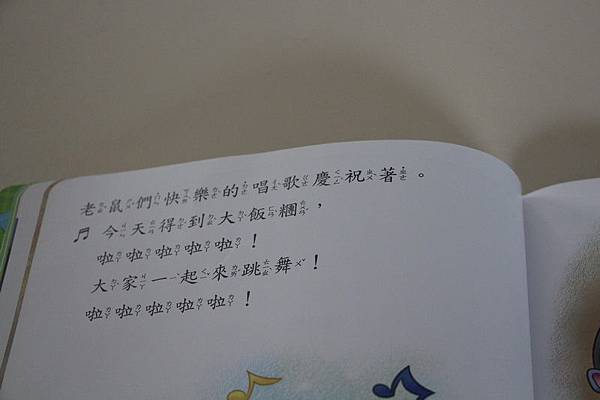 老鼠們快樂的唱歌慶祝著。
♬今天得到大飯糰，
啦啦啦啦啦！
大家一起來跳舞！
啦啦啦啦啦！